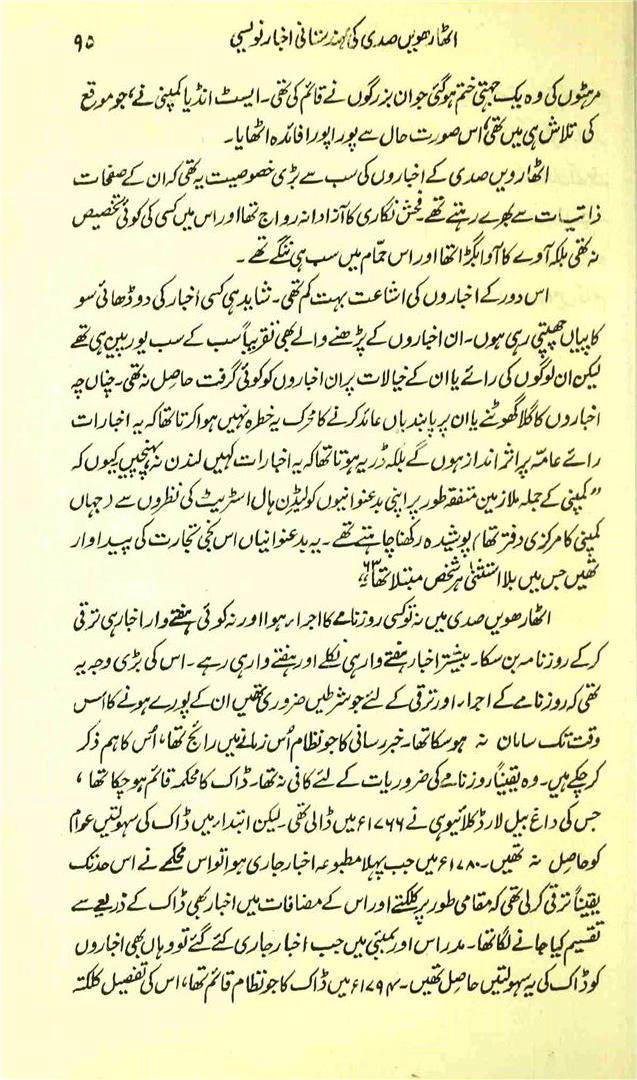 اٹھارھویں صدی کی ہندوستانی اخبار نویسی ۹۵
مرہٹوں کی وہ یک جہتی ختم ہو گئی جو ان بزرگوں نے قائم کی تھی۔ ایسٹ انڈیا کمپنی نے، جو موقع
کی تلاش ہی میں تھی، اس صورت حال سے پورا پورا فائدہ اٹھایا۔
اٹھارویں صدی کے اخباروں کی سب سے بڑی خصوصیت یہ تھی کہ ان کے صفحات
ذاتیات سے بھرے رہتے تھے۔ فحش نگاری کا آزادانہ رواج تھا اور اس میں کسی کی کوئی تخصیص
نہ تھی بلکہ آوے کا آوا بگڑا تھا اور اس حمّام میں سب ہی ننگے تھے۔
اس دور کے اخباروں کی اشاعت بہت کم تھی۔ شاید ہی کسی اخبار کی دو ڈھائی سو
کاپیاں چھپتی رہی ہوں۔ ان اخباروں کے پڑھنے والے بھی تقریباً سب کے سب یورپین ہی تھے
لیکن ان لوگوں کی رائے یا ان کے خیالات پر ان اخباروں کو کوئی گرفت حاصل نہ تھی۔ چناں چہ
اخباروں کا گلا گھوٹنے یا ان پر پابندیاں عائد کرنے کا محرک یہ خطرہ نہیں ہوا کرتا تھا کہ یہ اخبارات
رائے عامّہ پر اثر انداز ہوں گے بلکہ ڈر یہ ہوتا تھا کہ یہ اخبارات کہیں لندن نہ پہنچیں کیوں کہ
”کمپنی کے جملہ ملازمین متفقہ طور پر اپنی بدعنوانیوں کو لیڈن ہال اسٹریٹ کی نظروں سے (جہاں
کمپنی کا مرکزی دفتر تھا) پوشیدہ رکھنا چاہتے تھے۔ یہ بدعنوانیاں اس نجی تجارت کی پیداوار
تھیں جس میں بلا استثنیٰ ہر شخص مبتلا تھا“۶۳
اٹھارھویں صدی میں نہ تو کسی روزنامے کا اجراء ہوا اور نہ کوئی ہفتے وار اخبار ہی ترقی
کر کے روزنامہ بن سکا۔ بیشتر اخبار ہفتے وار ہی نکلے اور ہفتے وار ہی رہے۔ اس کی بڑی وجہ یہ
تھی کہ روزنامے کے اجراء اور ترقی کے لئے جو شرطیں ضروری تھیں ان کے پورے ہونے کا اس
وقت تک سامان نہ ہو سکا تھا۔ خبر رسانی کا جو نظام اُس زمانے میں رائج تھا، اُس کا ہم ذکر
کر چکے ہیں۔ وہ یقیناً روزنامے کی ضروریات کے لئے کافی نہ تھا۔ ڈاک کا محکمہ قائم ہو چکا تھا،
جس کی داغ بیل لارڈ کلائیو ہی نے ۱۷۶۶ء میں ڈالی تھی۔ لیکن ابتداء میں ڈاک کی سہولتیں عوام
کو حاصل نہ تھیں۔ ۱۷۸۰ء میں جب پہلا مطبوعہ اخبار جاری ہوا تو اس محکمے نے اس حد تک
یقیناً ترقی کر لی تھی کہ مقامی طور پر کلکتے اور اس کے مضافات میں اخبار بھی ڈاک کے ذریعے سے
تقسیم کیا جانے لگا تھا۔ مدراس اور بمبئی میں جب اخبار جاری کئے گئے تو وہاں بھی اخباروں
کو ڈاک کی یہ سہولتیں حاصل تھیں۔ ۱۷۹۴ء میں ڈاک کا جو نظام قائم تھا، اس کی تفصیل کلکتہ